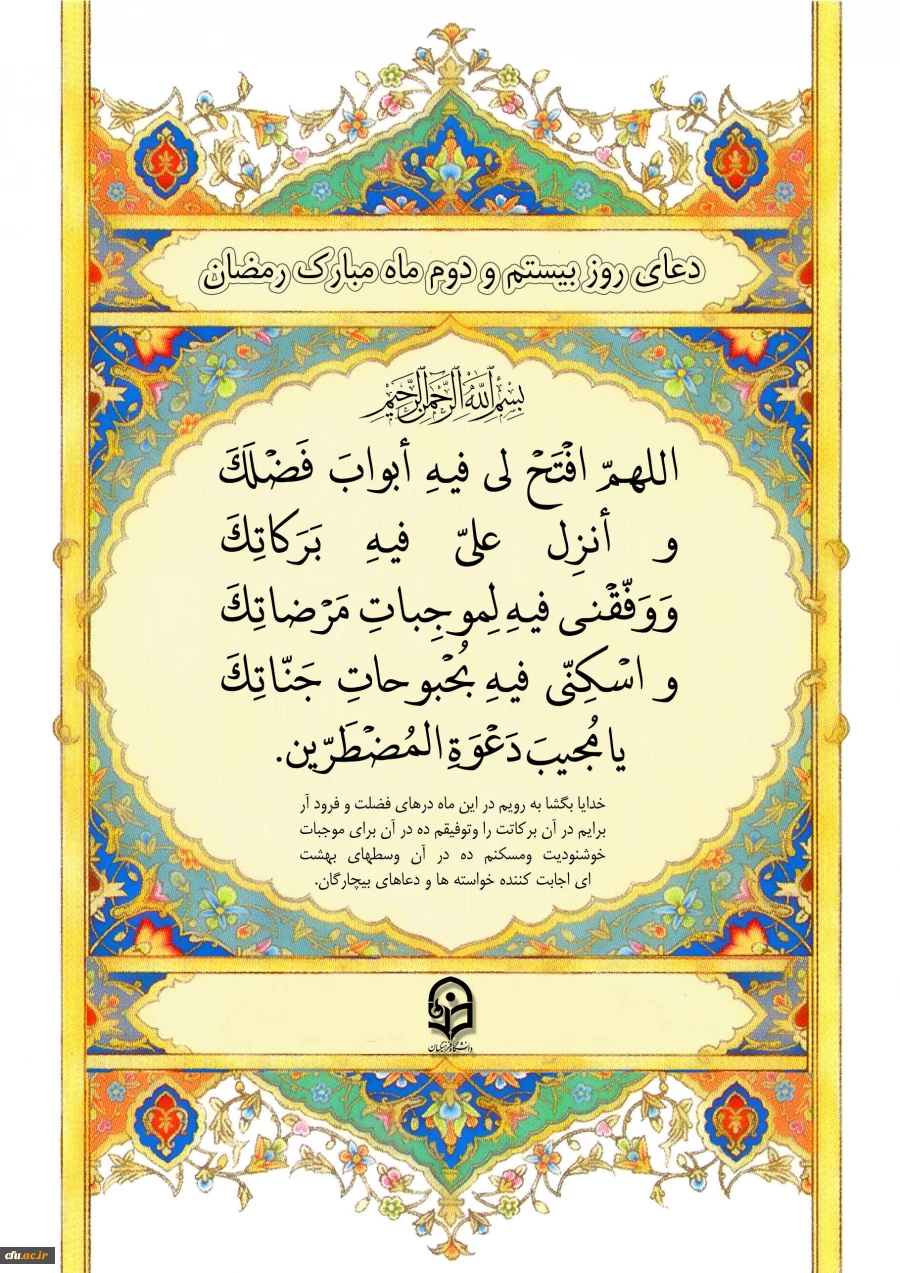 دعای روز بیستم و دوم ماه مبارک رمضان
بِسْمِ اللَّهِ الرَّحْمَنِ الرَّحِيمِ
اللهمّ افْتَحْ لی فیهِ أبوابَ فَضْلَكَ
و أنزِل علیّ فیهِ بَرَکاتِكَ
وَوَفّقْنی فیهِ لِموجِباتِ مَرْضاتِكَ
و اسْکِنّی فیهِ بُحْبوحاتِ جَنّاتِكَ
یا مُجیبَ دَعْوَةِ المُضْطَرّین.
خدایا بگشا به رویم در این ماه درهای فضلت و فرود آر
برایم در آن برکاتت را وتوفیقم ده در آن برای موجبات
خوشنودیت ومسکنم ده در آن وسطهای بهشت
ای اجابت کننده خواسته ها و دعاهای بیچارگان.
دانشگاه فرهنگیان
cfu.ac.ir